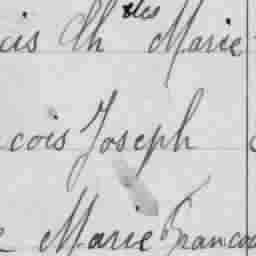 cis Ch^les Marie
cois Joseph
Marie Francoi